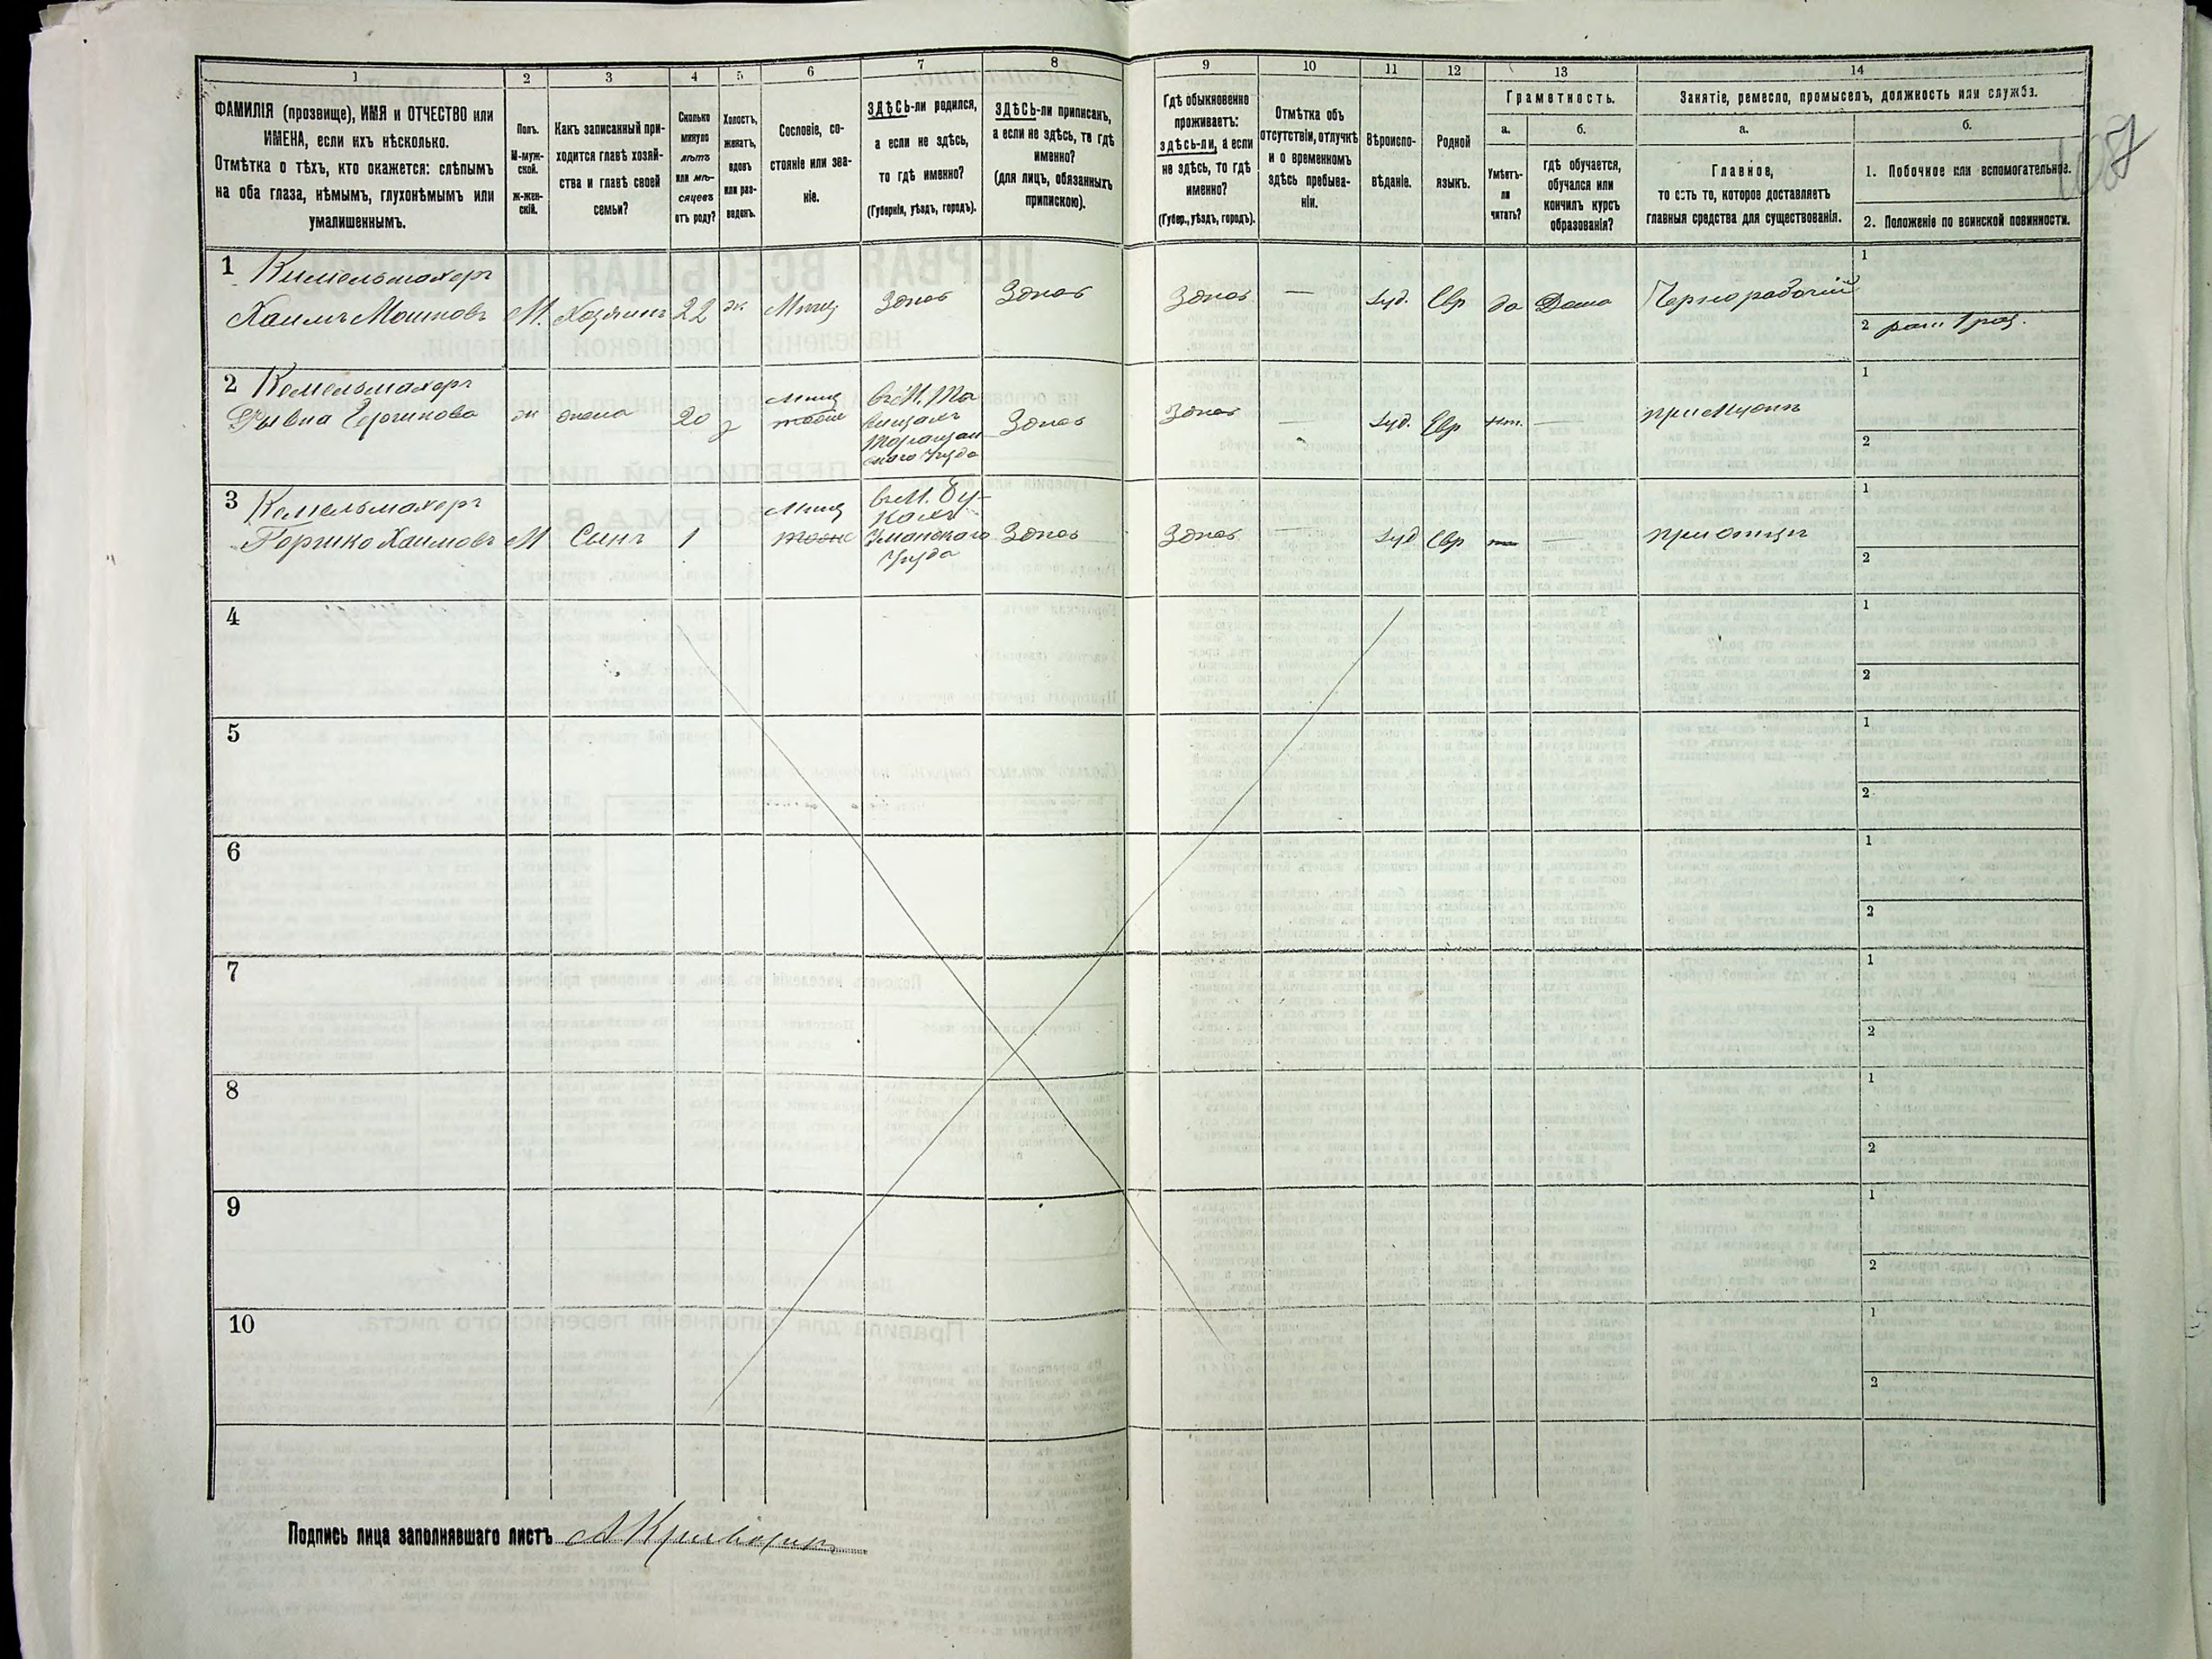 1 2 3 4 5 6 7 8 9 10 11 12 13 14
ФАМИЛІЯ (прозвище), ИМЯ и ОТЧЕСТВО или
ИМЕНА, если ихъ нѣсколько.
Отмѣтка о тѣхъ, кто окажется: слѣпымъ
на оба глаза, нѣмымъ, глухонѣмымъ или
умалишеннымъ.
Полъ.
М-муж-
ской.
Ж-жен-
скій.
Какъ записанный при-
ходится главѣ хозяй-
ства и главѣ своей
семьи?
Сколько
минуло
лѣтъ
или мѣ-
сяцевъ
отъ роду?
Холостъ,
женатъ,
вдовъ
или раз-
веденъ.
Сословіе, со-
стояніе или зва-
ніе.
ЗДѢСЬ-ли родился,
а если не здѣсь,
то гдѣ именно?
(Губернія, уѣздъ, городъ).
ЗДѢСЬ-ли приписанъ,
а если не здѣсь, то гдѣ
именно?
(для лицъ, обязанныхъ
припискою).
Гдѣ обыкновенно
проживаетъ:
здѣсь-ли, а если
не здѣсь, то гдѣ
именно?
(Губер., уѣздъ, городъ).
Отмѣтка объ
отсутствіи, отлучкѣ
и о временномъ
здѣсь пребыва-
ніи.
Вѣроиспо-
вѣданіе.
Родной
языкъ.
Грамотность.
а.
Умѣетъ-
ли
читать?
б.
гдѣ обучается,
обучался или
кончилъ курсъ
образованія?
Занятіе, ремесло, промыселъ, должность или служба.
а.
Главное,
то есть то, которое доставляетъ
главныя средства для существованія.
б.
1. Побочное или вспомогательное.
2. Положеніе по воинской повинности.
1 Кимельмахеръ
Хаимъ Мошковъ М. Хозяинъ 22 ж Мѣщ Здѣсь Здѣсь Здѣсь — Іуд. Евр да Дома Чернорабочій
1
2 ратн 1 раз.
2 Кемельмахеръ
Рывка Гершкова ж жена 20 з Мѣщ
въ М. Та
Таращан
скаго Уѣзда
Здѣсь Здѣсь — Іуд. Евр нѣт. — при Мужѣ
1
2
3 Кемельмахеръ
Гершко Хаимовъ М Сынъ 1 Мѣщ
въ М. Бу-
кахъ
Уманскаго
Уѣзда
Здѣсь Здѣсь — Іуд Евр — при отцѣ
1
2
4
1
2
5
1
2
6
1
2
7
1
2
8
1
2
9
1
2
10
1
2
Подпись лица заполнявшаго листъ